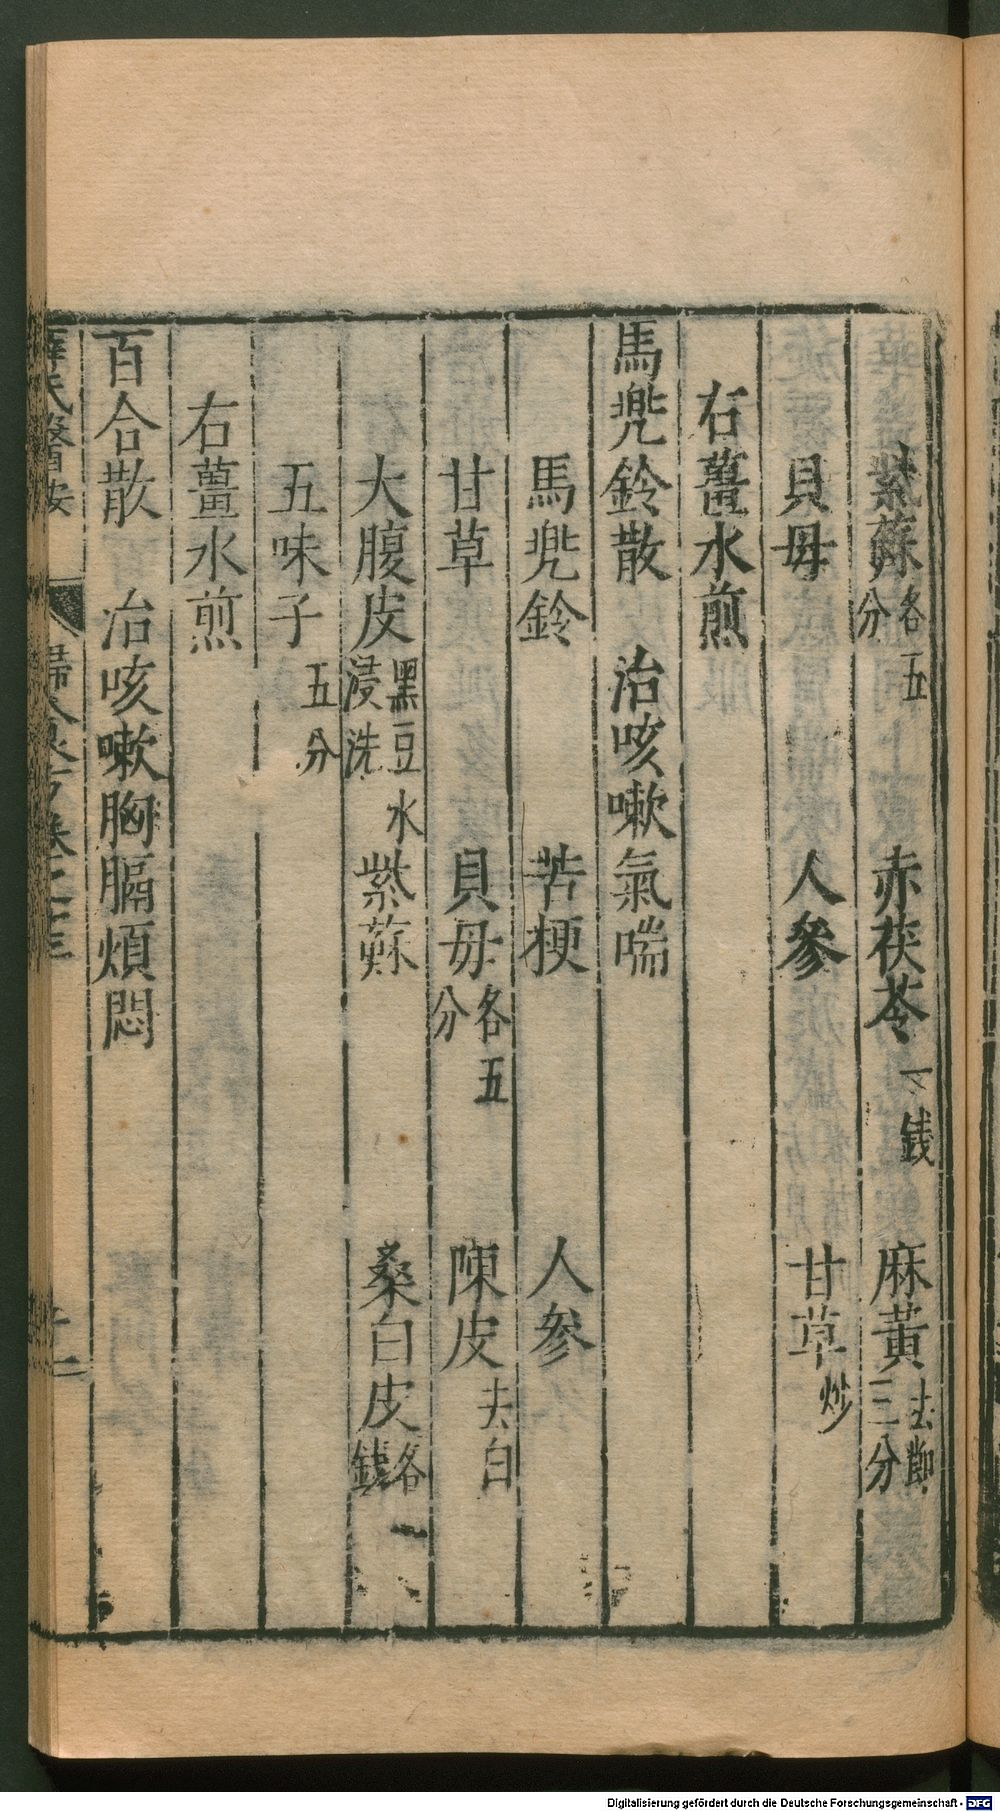 紫蘇各五分 赤茯苓一錢 麻黃去節三分
貝母 人參 甘草炒
右薑水煎
馬兠鈴散 治咳嗽氣喘
馬兠鈴 苦梗 人參
甘草 貝母各五分 陳皮去白
大腹皮黑豆水浸洗 紫蘇 桑白皮各一錢
五味子五分
右薑水煎
百合散 治咳嗽胸膈煩悶
薛氏醫按 婦人良方卷之十三
Digitalisierung gefördert durch die Deutsche Forschungsgemeinschaft - DFG